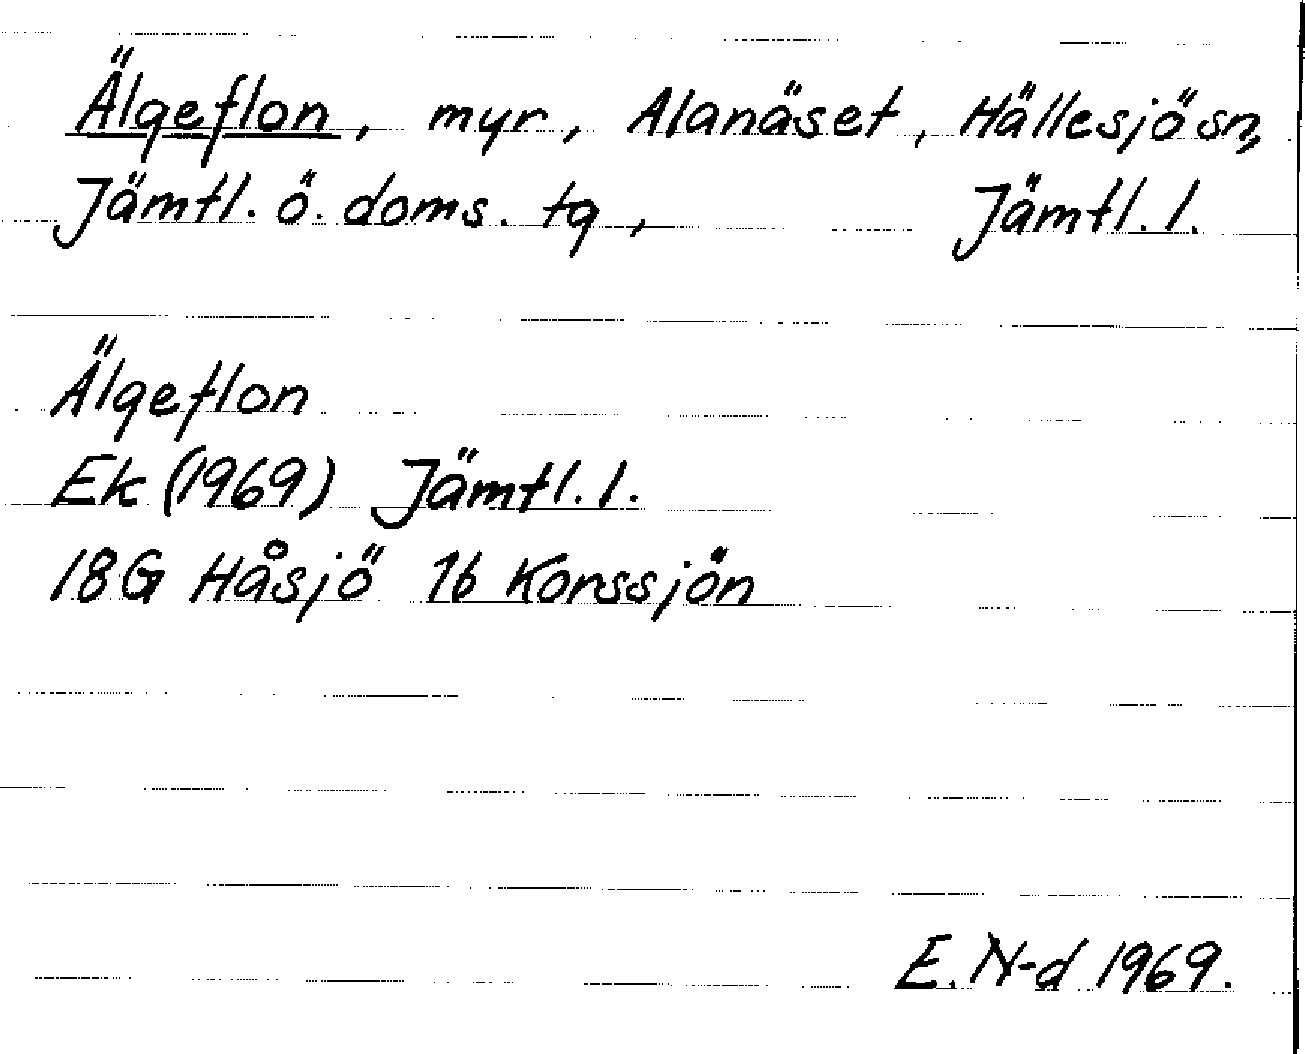 Älgeflon, myr, Alanäset, Hällesjö sn,
Jämtl. ö. doms. tg, Jämtl. l.
Älgeflon
Ek (1969) Jämtl. l.
18G Håsjö 1b Korssjön
E. N-d 1969.